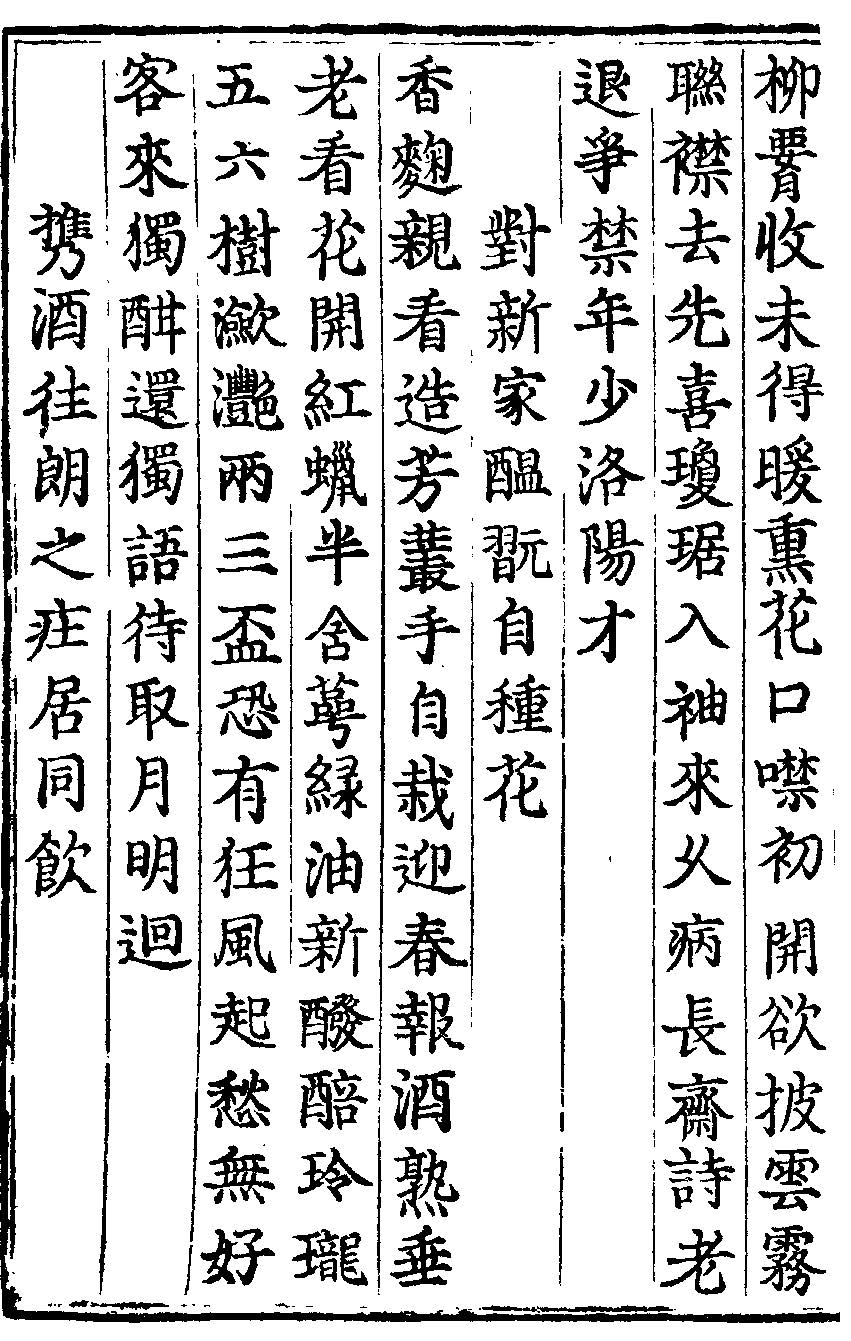 柳眢收未得暖熏花口噤初開欲披雲霧
聯襟去先喜瓊琚入袖來久病長齋詩老
退爭禁年少洛陽才
對新家醖翫自種花
香麴親看造芳叢手自栽迎春報酒熟垂
老看花開紅蠟半含萼緑油新醱醅玲瓏
五六樹瀲灩兩三盃恐有狂風起愁無好
客來獨酣還獨語待取月明迴
攜酒往朗之莊居同飲